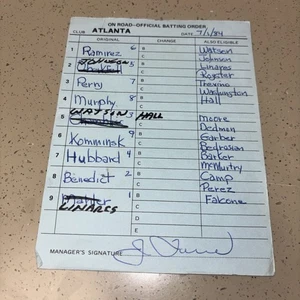 ON ROAD-OFFICIAL BATTING ORDER
CLUB ATLANTA DATE 7/1/84
ORIGINAL CHANGE ALSO ELIGIBLE
1 Ramirez 6 B Watson
C Johnson
2 JOHNSON 5 B Linares
C Royster
3 Perry 7 B Trevino
C Washington
4 Murphy 8 B Hall
C
5 WATSON 3 HALL B Moore
Chambliss C Dedman
6 Komminsk 9 B Garber
C Bedrosian
7 Hubbard 4 B Barker
C McMurtry
8 Benedict 2 B Camp
C Perez
9 Mahler 1 B Falcone
LINARES C
MANAGER'S SIGNATURE